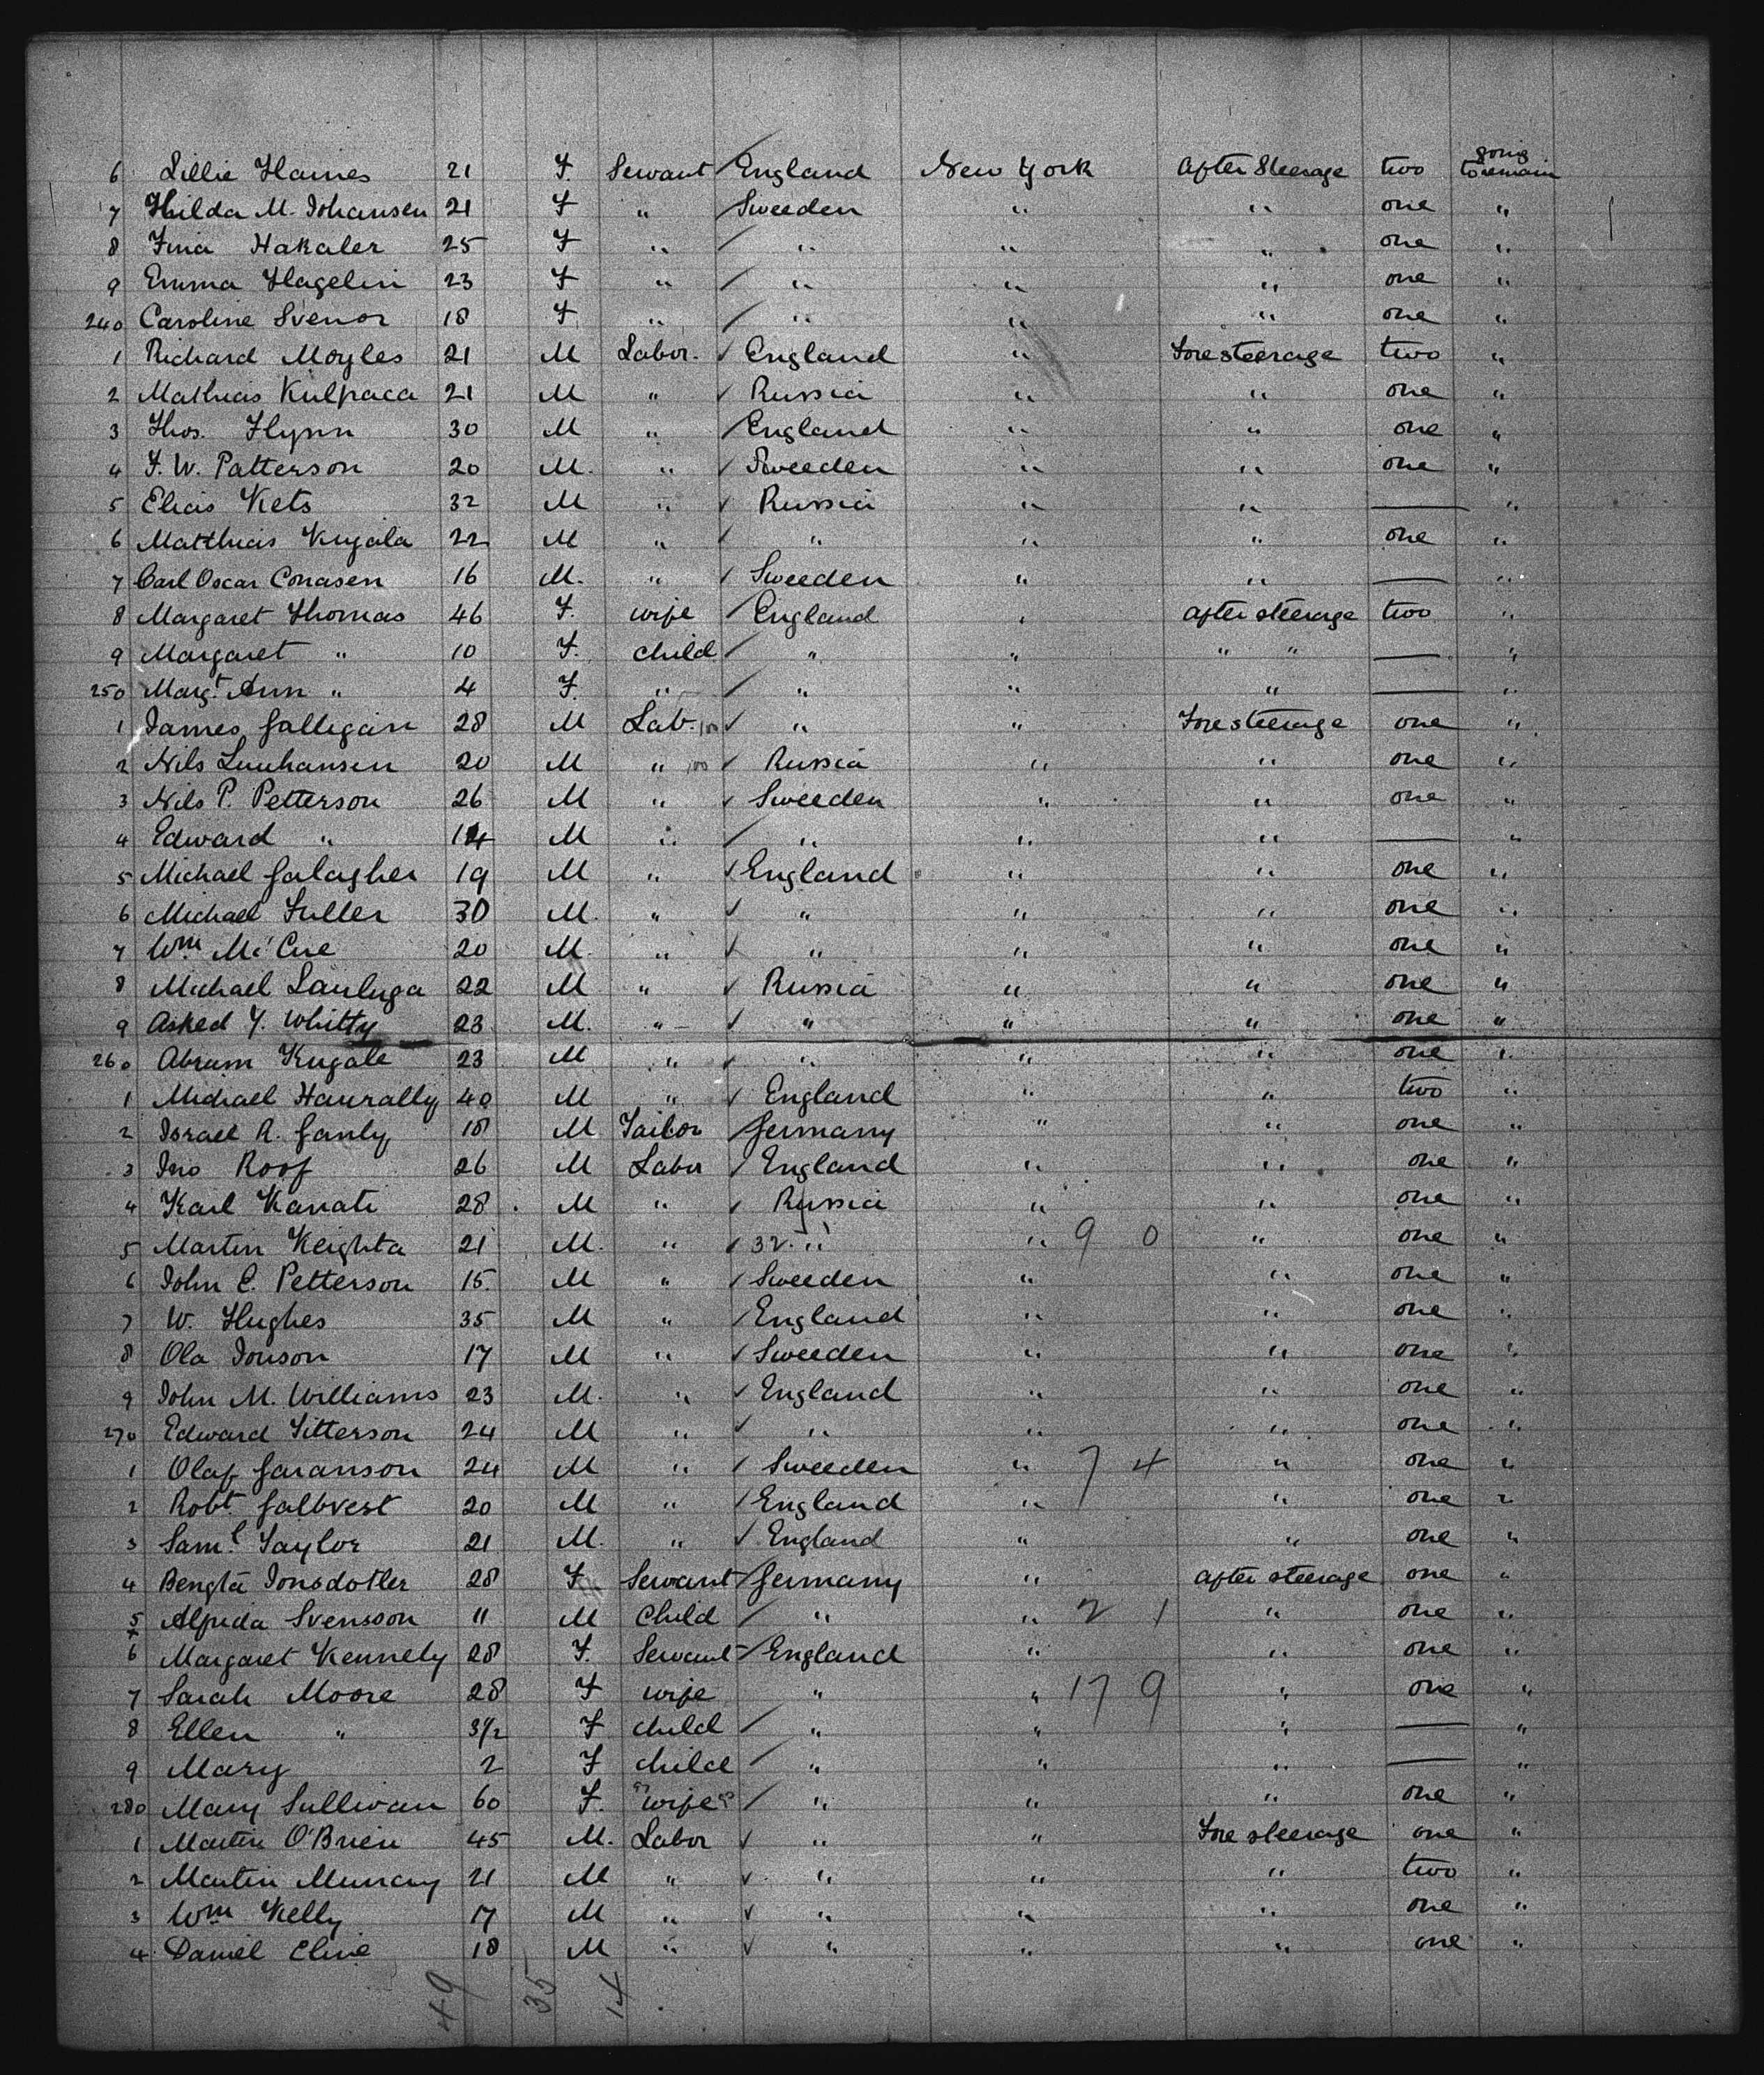 6 Lillie Haines 21 F. Servant England New York After Steerage two going to remain
7 Hilda M. Johansen 21 F " Sweeden " " one "
8 Fina Hakaler 25 F " " " " one "
9 Emma Hagelin 23 F " " " " one "
240 Caroline Svenor 18 F " " " " one "
1 Richard Moyles 21 M Labor. England " Foresteerage two "
2 Mathias Kulpaca 21 M " Russia " " one "
3 Thos. Flynn 30 M " England " " one "
4 F. W. Patterson 20 M. " Sweeden " " one "
5 Elias Kets 32 M " Russia " " — "
6 Matthias Kujala 22 M " " " " one "
7 Carl Oscar Conasen 16 M. " Sweeden " " — "
8 Margaret Thomas 46 F. wife England " After steerage two "
9 Margaret " 10 F. child " " " " — "
250 Margt. Ann " 4 F. " " " " — "
1 James Galligan 28 M Lab. " " Foresteerage one "
2 Nils Luuhansen 20 M " Russia " " one "
3 Nils P. Petterson 26 M " Sweeden " " one "
4 Edward " 14 M " " " " — "
5 Michael Galagher 19 M " England " " one "
6 Michael Fuller 30 M. " " " " one "
7 Wm McCue 20 M. " " " " one "
8 Michael Lauluga 22 M " Russia " " one "
9 Asked Y. Whitty 23 M. " " " " one "
260 Abram Kugale 23 M " " " " one "
1 Michael Haurally 40 M " England " " two "
2 Israel A. Ganly 18 M Tailor Germany " " one "
3 Jno Roof 26 M Labor England " " one "
4 Karl Kanati 28 M " Russia " " one "
5 Martin Keighta 21 M. " 32. " " 9 0 " one "
6 John E. Petterson 15. M " Sweeden " " one "
7 W. Hughes 35 M " England " " one "
8 Ola Jonson 17 M " Sweeden " " one "
9 John M. Williams 23 M. " England " " one "
270 Edward Titterson 24 M " " " " one "
1 Olaf Garanson 24 M " Sweeden " 7 4 " one "
2 Robt. Galbvest 20 M " England " " one "
3 Saml. Taylor 21 M. " England " " one "
4 Bengta Jonsdotter 28 F Servant Germany " After steerage one "
5 Alfrida Svensson 11 M Child " " 2 1 " one "
6 Margaret Kennely 28 F. Servant England " " one "
7 Sarah Moore 28 F wife " " 17 9 " one "
8 Ellen " 3½ F child " " " — "
9 Mary 2 F child " " " — "
280 Mary Sullivan 60 F. "wife" " " " one "
1 Martin O'Brien 45 M. Labor " " Fore steerage one "
2 Martin Murray 21 M " " " " two "
3 Wm Kelly 17 M " " " " one "
4 Daniel Cline 18 M " " " " one "
49 35 14